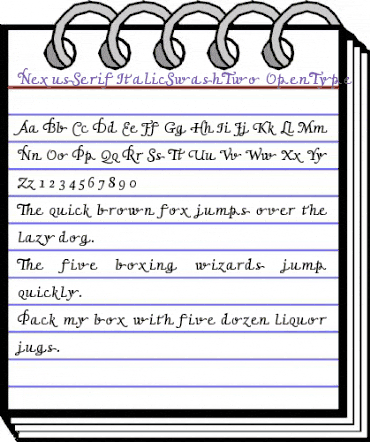 NexusSerif ItalicSwashTwo OpenType
Aa Bb Cc Dd Ee Ff Gg Hh Ii Jj Kk Ll Mm
Nn Oo Pp Qq Rr Ss Tt Uu Vv Ww Xx Yy
Zz 1 2 3 4 5 6 7 8 9 0
The quick brown fox jumps over the
lazy dog.
The five boxing wizards jump
quickly.
Pack my box with five dozen liquor
jugs.